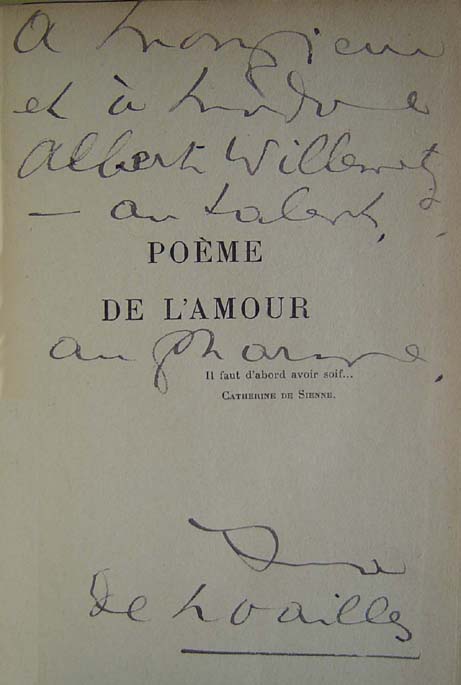 A Monsieur
et à Madame
Albert Willemetz
— au talent,
POÈME
DE L'AMOUR
au charme,
Il faut d'abord avoir soif...
CATHERINE DE SIENNE.
Anna
de Noailles